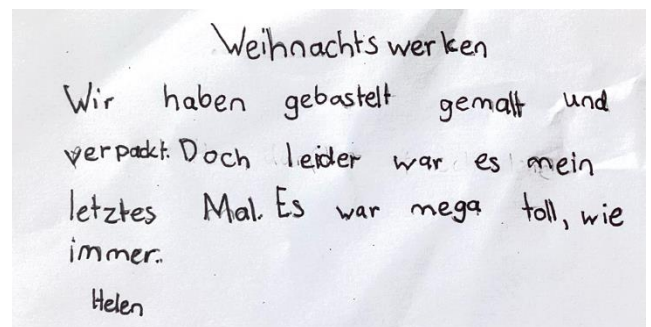 Weihnachtswerken
Wir haben gebastelt gemalt und
verpackt. Doch leider war es mein
letztes Mal. Es war mega toll, wie
immer.
Helen